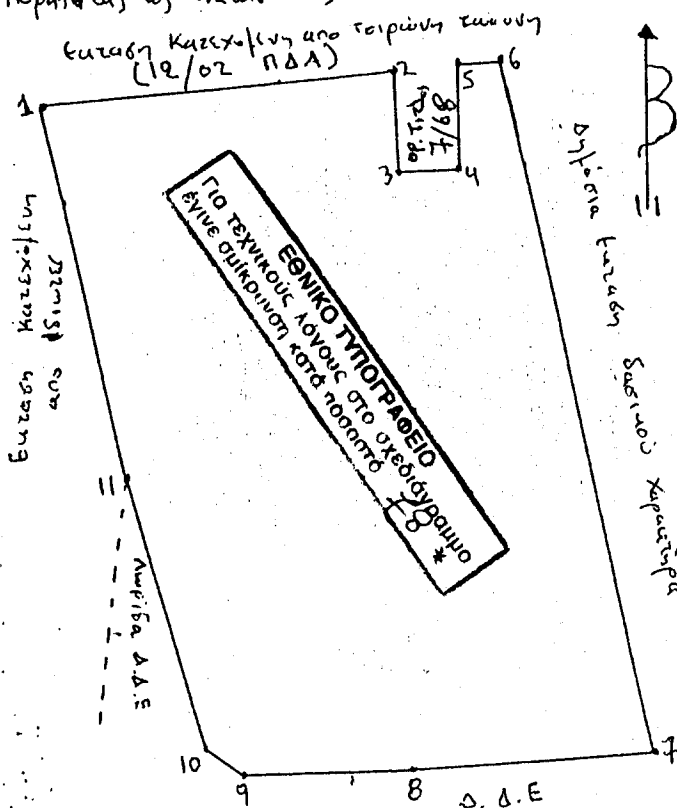 Εκταση Κατεχόμενη απο Τσιρώνη
(12/02 ΠΔΑ)
1
2
5
6
3
4
Εκταση Κατεχόμενη
απο ιδιωτες
Δημόσια Εκταση δασικού χαρακτήρα
ΕΘΝΙΚΟ ΤΥΠΟΓΡΑΦΕΙΟ
Για τεχνικούς λόγους στο σχεδιάγραμμα
έγινε σμίκρυνση κατά ποσοστό
*
11
Λωρίδα Δ.Δ.Ε
10
9
8
7
Δ.Δ.Ε